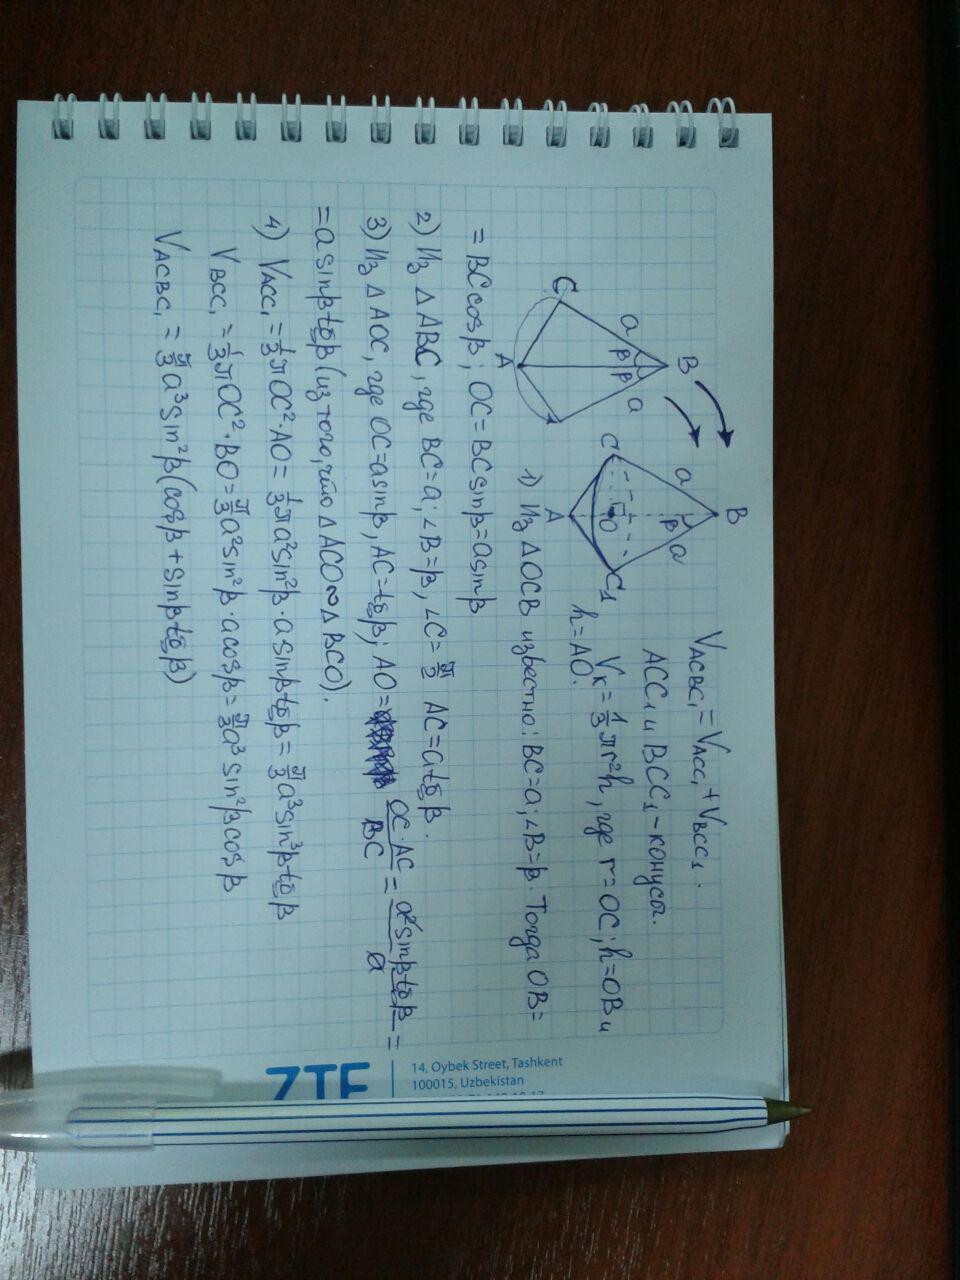 V_ACBC₁ = V_ACC₁ + V_BCC₁.
ACC₁ и BCC₁ - конусы.
V_к = 1/3 πr²h, где r=OC; h=OB и
h=AO.
B
a
a
β
β
C
A
B
a
a
β
C
O
C₁
A
1) Из ΔOCB известно: BC=a; ∠B=β. Тогда OB=
= BC cosβ; OC=BC sinβ=a sinβ
2) Из ΔABC, где BC=a; ∠B=β, ∠C=π/2 AC=a tgβ.
3) Из ΔAOC, где OC=a sinβ, AC=tgβ; AO= OC·AC/BC = a² sinβ tgβ/a =
= a sinβ tgβ (из того, что ΔACO∾ΔBCO).
4) V_ACC₁ = 1/3 πOC²·AO = 1/3 πa² sin²β · a sinβ tgβ = π/3 a³ sin³β tgβ
V_BCC₁ = 1/3 πOC²·BO = π/3 a² sin²β · a cosβ = π/3 a³ sin²β cosβ
V_ACBC₁ = π/3 a³ sin²β (cosβ + sinβ tgβ)
ZTE
14, Oybek Street, Tashkent
100015, Uzbekistan